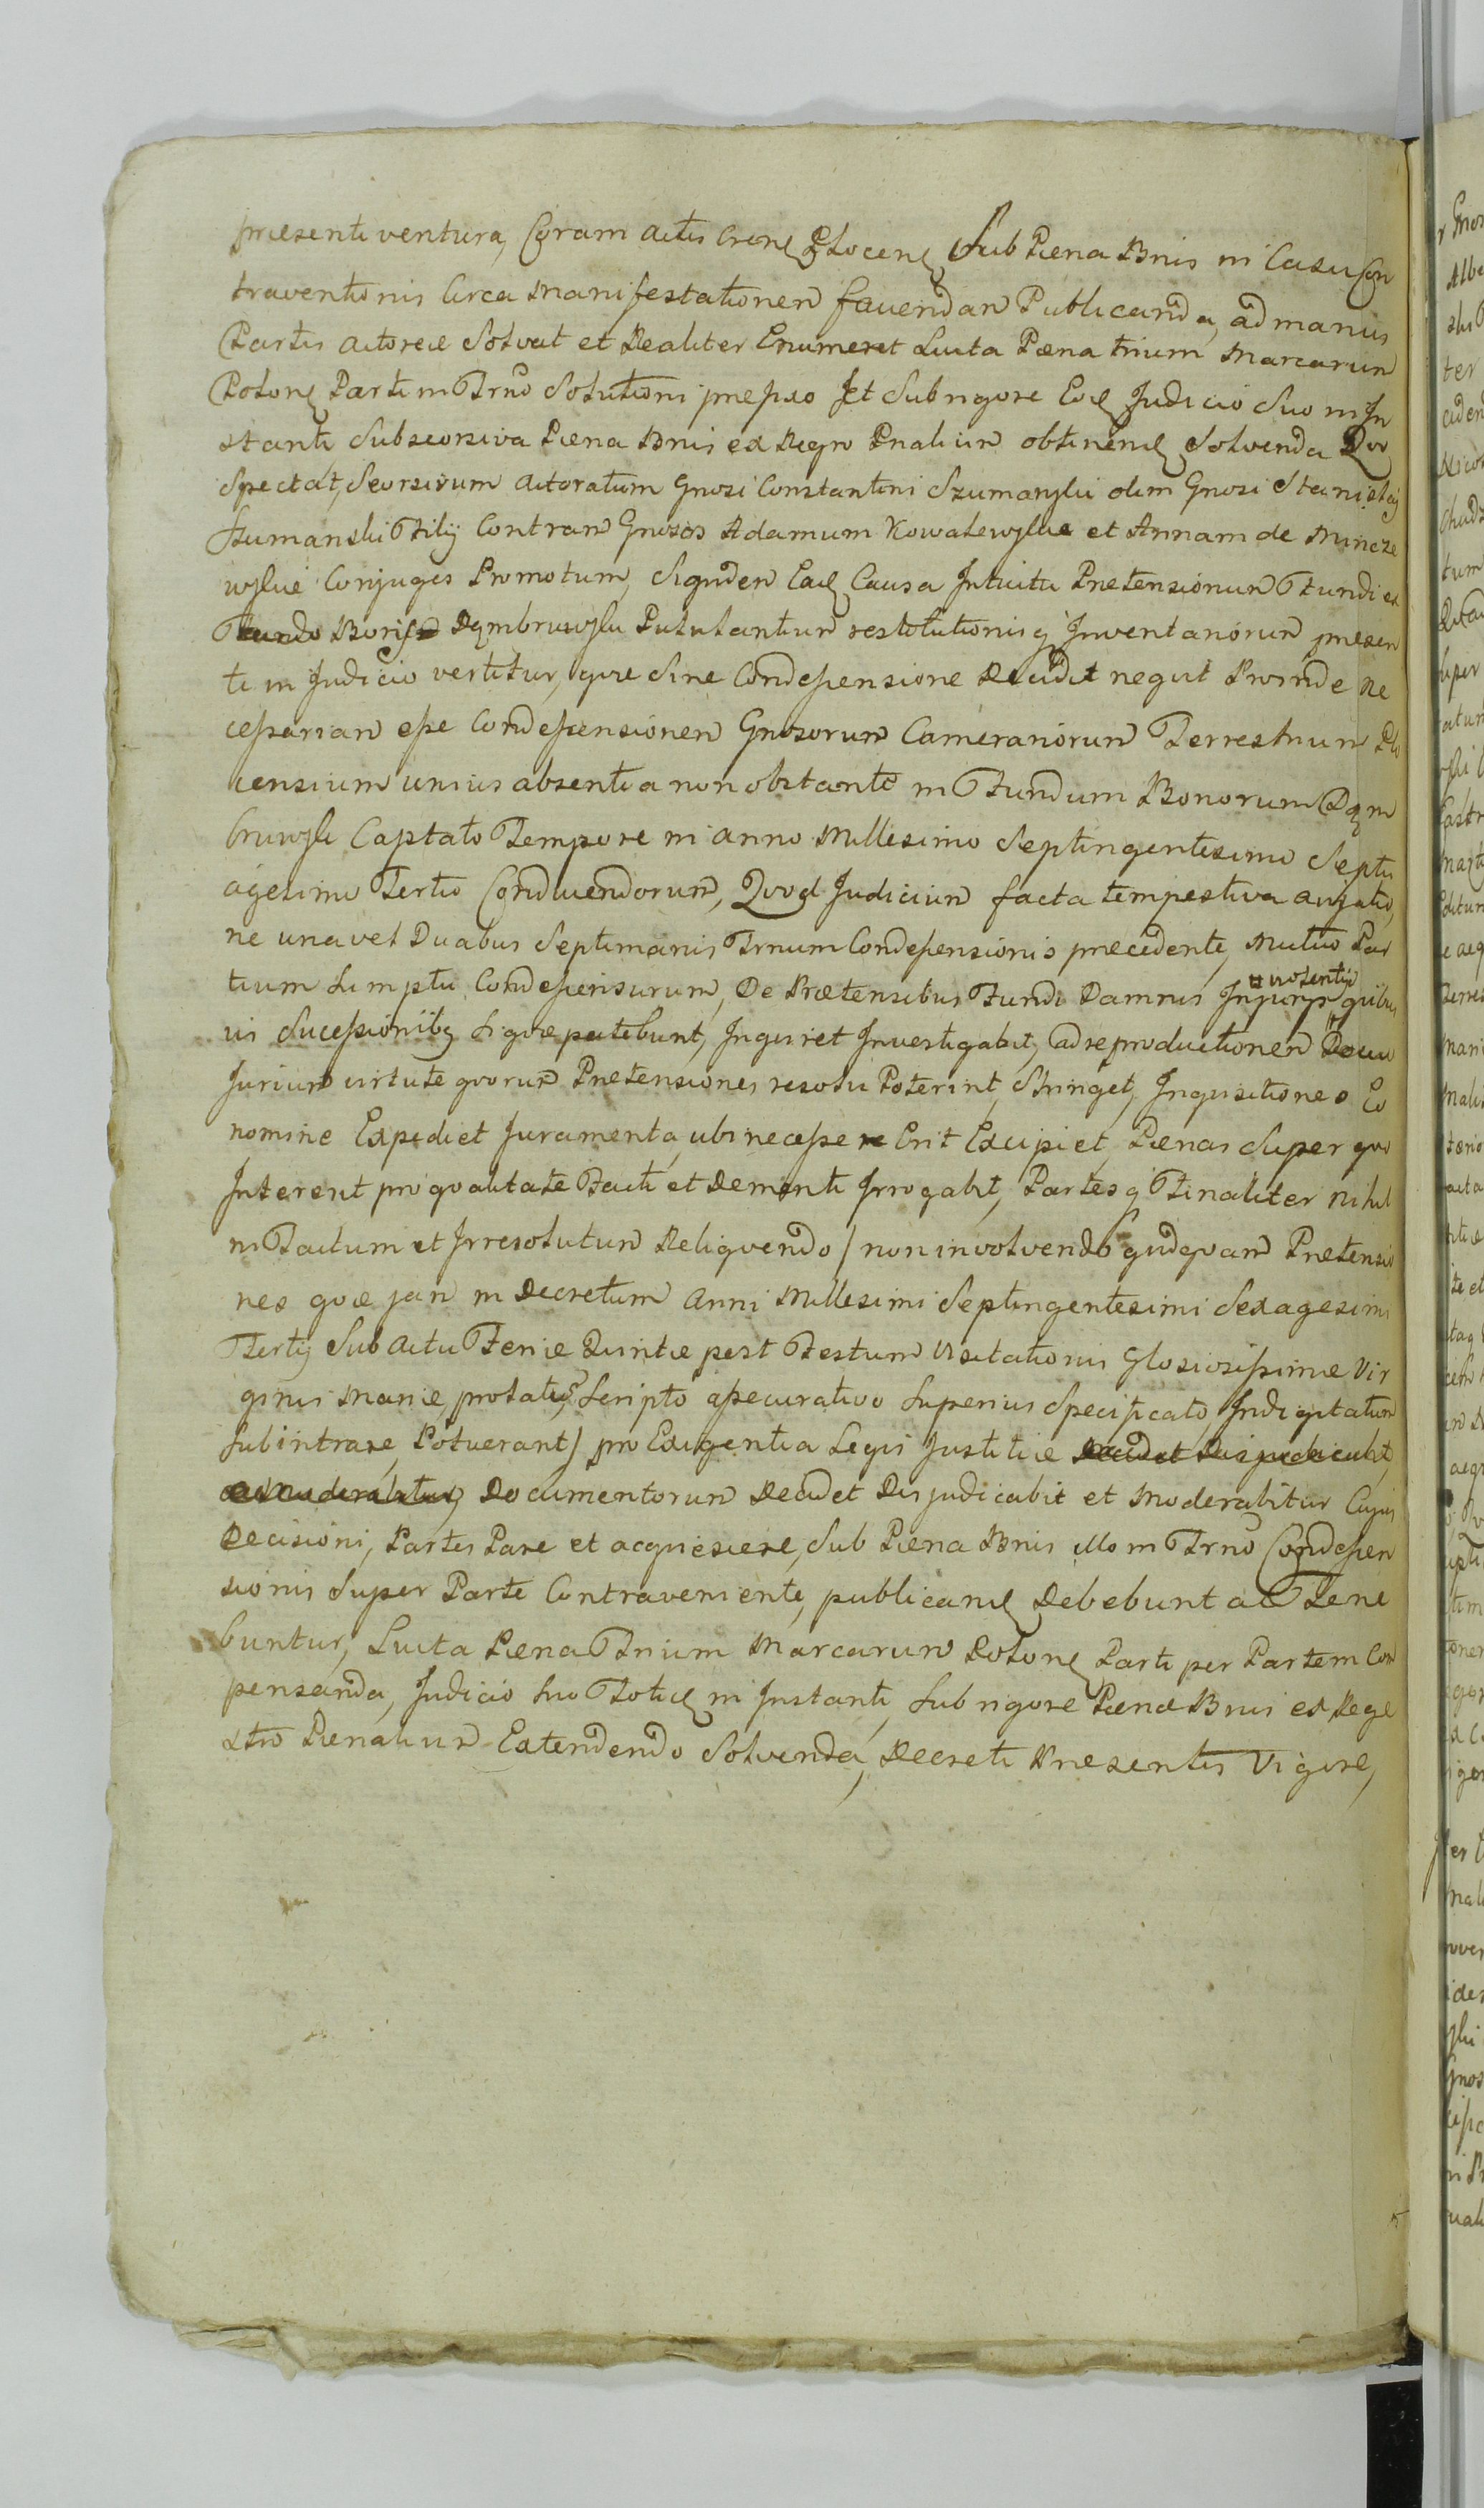 præsenti ventura, Coram Actis Cren Plocen Sub Pæna Bnis in Casu Con
traventionis Circa Manifestationem favendam Publicanda, ad manus
Partis Actoreæ Solvat et Realiter Enumeret Luita Pæna trium Marcarum
Polon Parti in Trno Solutioni præfixo Et Sub rigore Ejusd Judicio Suo in In
stanti Subseorsiva Pæna Bnis ex Regro Pnalium obtinen Solvenda Qvo
Spectat, Seorsivum Actoratum Gnosi Constantini Szumanski olim Gnosi Stanislai
Szumanski Filij Contram Gnosos Adamum Kowalewski et Annam de Mincze
wskie Conjuges Promotum, Siqvidem Ead Causa Intuitu Prætensionum Fundi et
Fundo Boris Dąmbruwski Pululantium restitutionisq Inventariorum præsen
ti in Judicio vertitur, qvæ Sine Condescensione Decidi neqvit Proinde Ne
cessariam esse Condescensionem Gnosorum Camerariorum Terrestrium Plo
censium unius absentia non obstante in Fundum Bonorum Dąm
bruwsk Captato Tempore in anno Millesimo Septingentesimo Septu
agesimo Tertio Conducendorum, Qvod Judicium facta tempestiva avisatio
ne una vel Duabus Septimanis Trnum Condescensionis præcedente, Mutuo Par
tium Sumptu Condescensurum, De Prætensibus Fundi Damnis Injurijs violentijs qvibus
vis Sucessionibq si qvæ patebunt, Inqviret Investigabit, ad reproductionem Docu
Jurium virtute qvorum Prætensiones resolvi Poterint, Stringet, Inqvisitiones Eo
nomine Expediet Juramenta, ubi necesse Erit Excipiet, Pænas Super qvo
Intererit pro qvalitate Facti et Demeriti Irrogabit, Partesq Finaliter Nihil
in Factum et Irresolutum Reliqvendo / non involvendo qvidqvam Prætensio
nes qvæ jam in Decretum Anni Millesimi Septingentesimi Sexagesimi
Tertij Sub Actu Feriæ Qvintæ post Festum Visitationis Gloriosissimæ Vir
ginis Mariæ, prolatis Scripto assecurativo Superius Specificato Indigitatum
Subintrare Potuerant / pro Exigentia Legis Justitiæ Decidet Disjudicabit,
et Moderabitur, Documentorum Decidet Disjudicabit et Moderabitur Cujus
Decisioni, Partes Pare et acqviescere, Sub Pæna Bnis illo in Trno Condescen
sionis Super Parte Contraveniente, publican Debebunt ac Tene
buntur, Luita Pæna Trium Marcarum Polon Parti per Partem Com
pensanda, Judicio Suo Toties in Instanti, Sub rigore Pænæ Bnis ex Rege
stro Pænalium Extendendo Solvenda, Decreti Præsentis Vigore,